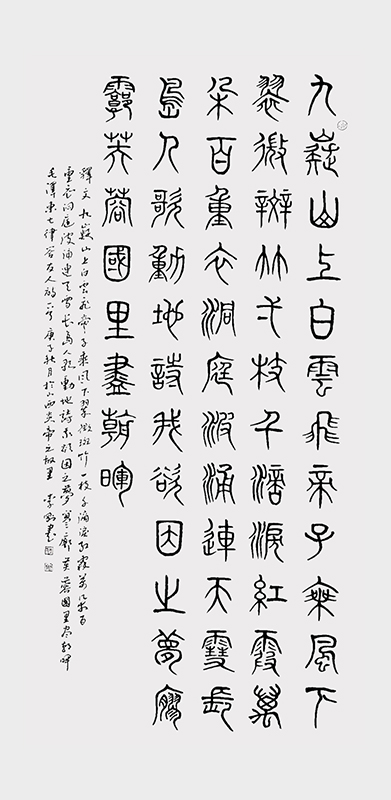 九嶷山上白雲飛帝子乘風下
翠微辬竹弌枝千滴淚紅霞萬
朵百重衣洞庭波涌連天雪長
島人歌動地詩我欲因之夢寥
霩芙蓉國里盡朝暉
釋文 九嶷山上白雲飛帝子乘風下翠微斑竹一枝千滴淚紅霞萬朵百
重衣洞庭波涌連天雪長島人歌動地詩我欲因之夢寥廓芙蓉國里盡朝暉
毛澤東七律答友人 庚子秋月於山西炎帝之故里 李 書